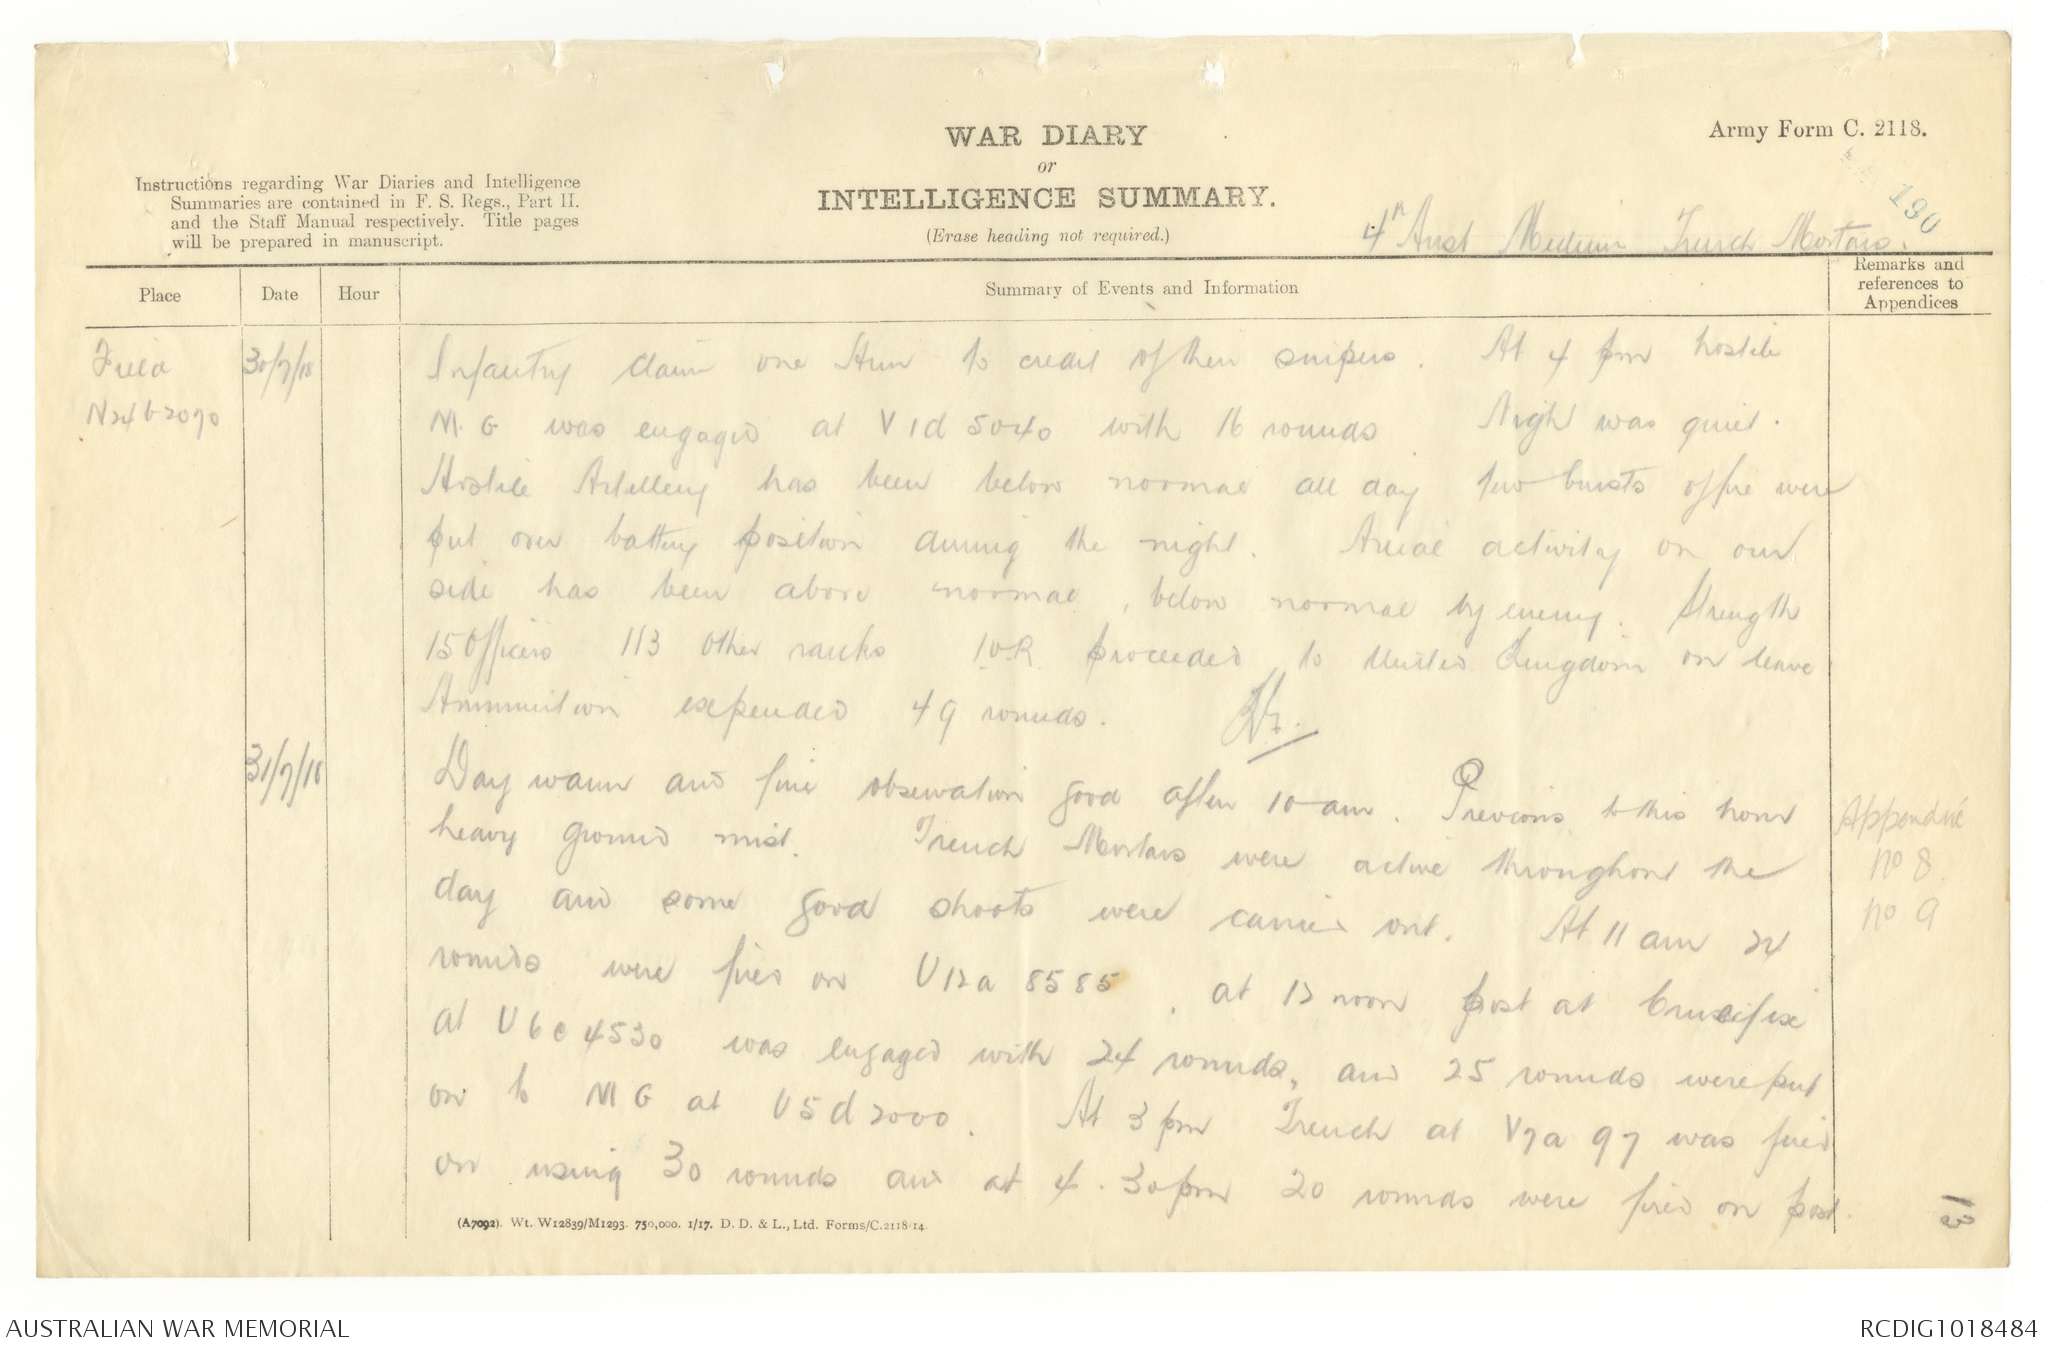 WAR DIARY
or
INTELLIGENCE SUMMARY.
(Erase heading not required.)
Army Form C. 2118.
Instructions regarding War Diaries and Intelligence
Summaries are contained in F. S. Regs., Part II.
and the Staff Manual respectively. Title pages
will be prepared in manuscript.
190
4th Aust Medium Trench Mortars.
Place
Date
Hour
Summary of Events and Information
Remarks and
references to
Appendices
Field
N24b2070
30/7/18
Infantry claim one Hun to credit of their snipers. At 4 pm hostile
M. G was engaged at V1d 5040 with 16 rounds Night was quiet.
Hostile Artillery has been below normal all day few bursts of fire were
put over battery position during the night. Aerial activity on our
side has been above normal, below normal by enemy. Strength
15 Officers 113 Other ranks 1 O.R. proceeded to United Kingdom on leave
Ammunition expended 49 rounds.
31/7/18
Day warm and fine observation good after 10 am. Previous to this hour
heavy ground mist. Trench Mortars were active throughout the
day and some good shoots were carried out. At 11 am 24
rounds were fired on U12a 8585, at 12 noon post at Crucifix
at U6c4530 was engaged with 24 rounds, and 25 rounds were put
on to MG at U5d2000. At 3 pm Trench at V7a 97 was fired
on using 30 rounds and at 4.30pm 20 rounds were fired on post
Appendix
no 8
no 9
(A7092). Wt. W12839/M1293. 750,000. 1/17. D. D. & L., Ltd. Forms/C.2118/14.
AUSTRALIAN WAR MEMORIAL
RCDIG1018484